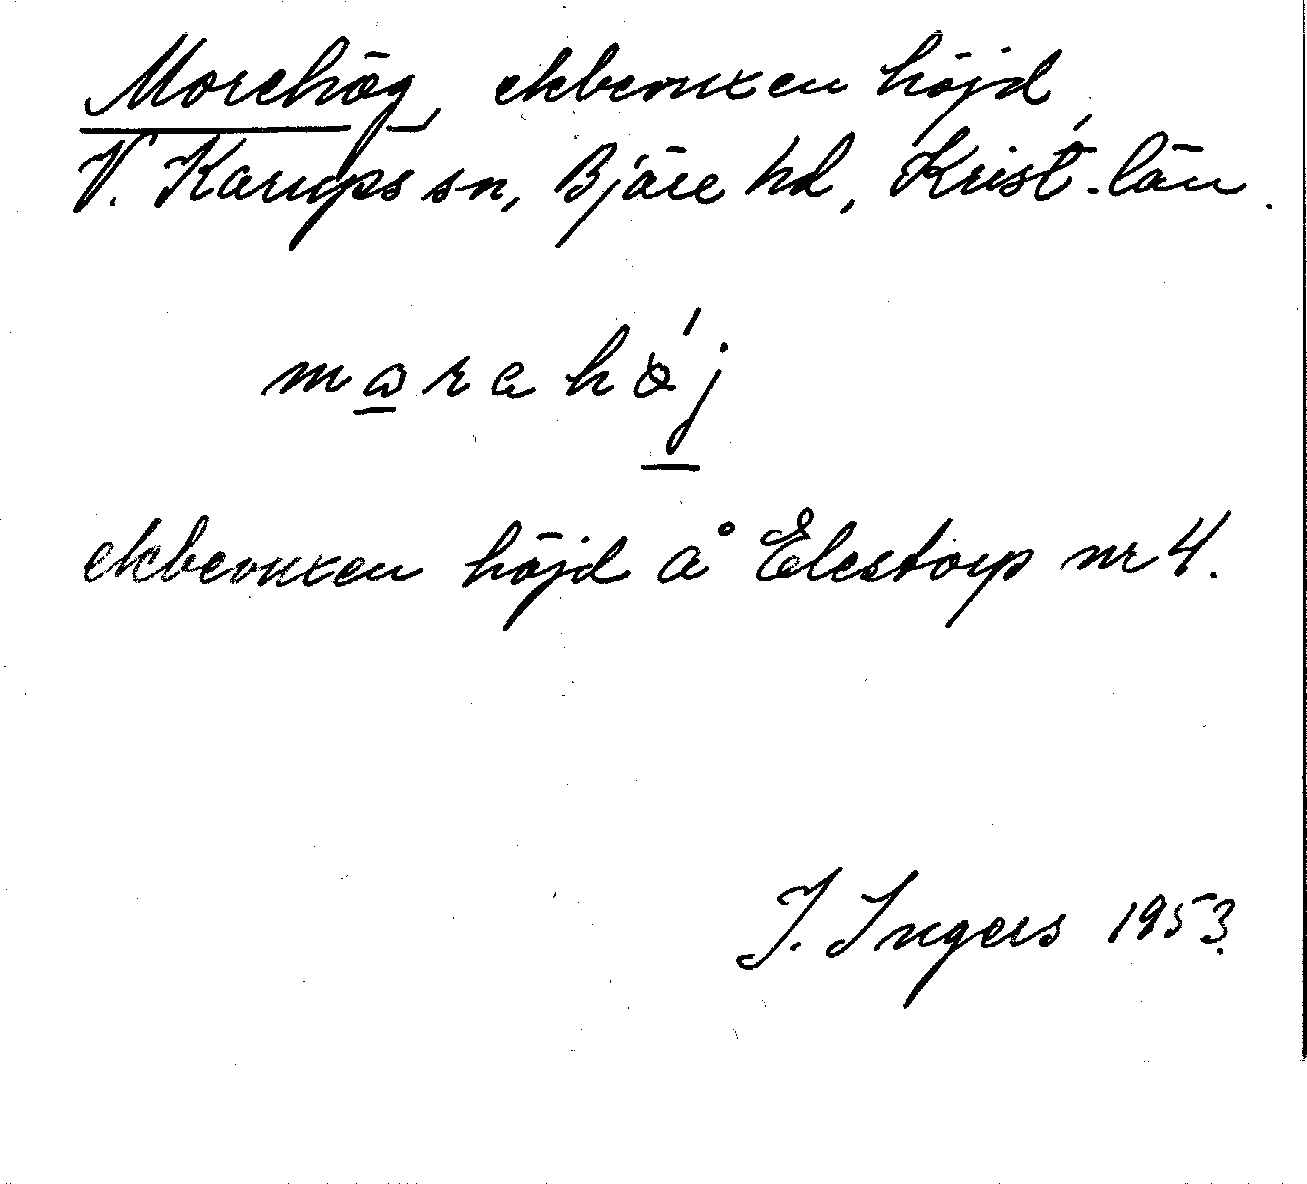 Morehög, ekbevuxen höjd,
V. Karups sn, Bjäre hd, Krist. län.
marahøj
ekbevuxen höjd å Elestorp nr 4.
I. Ingers 1953.